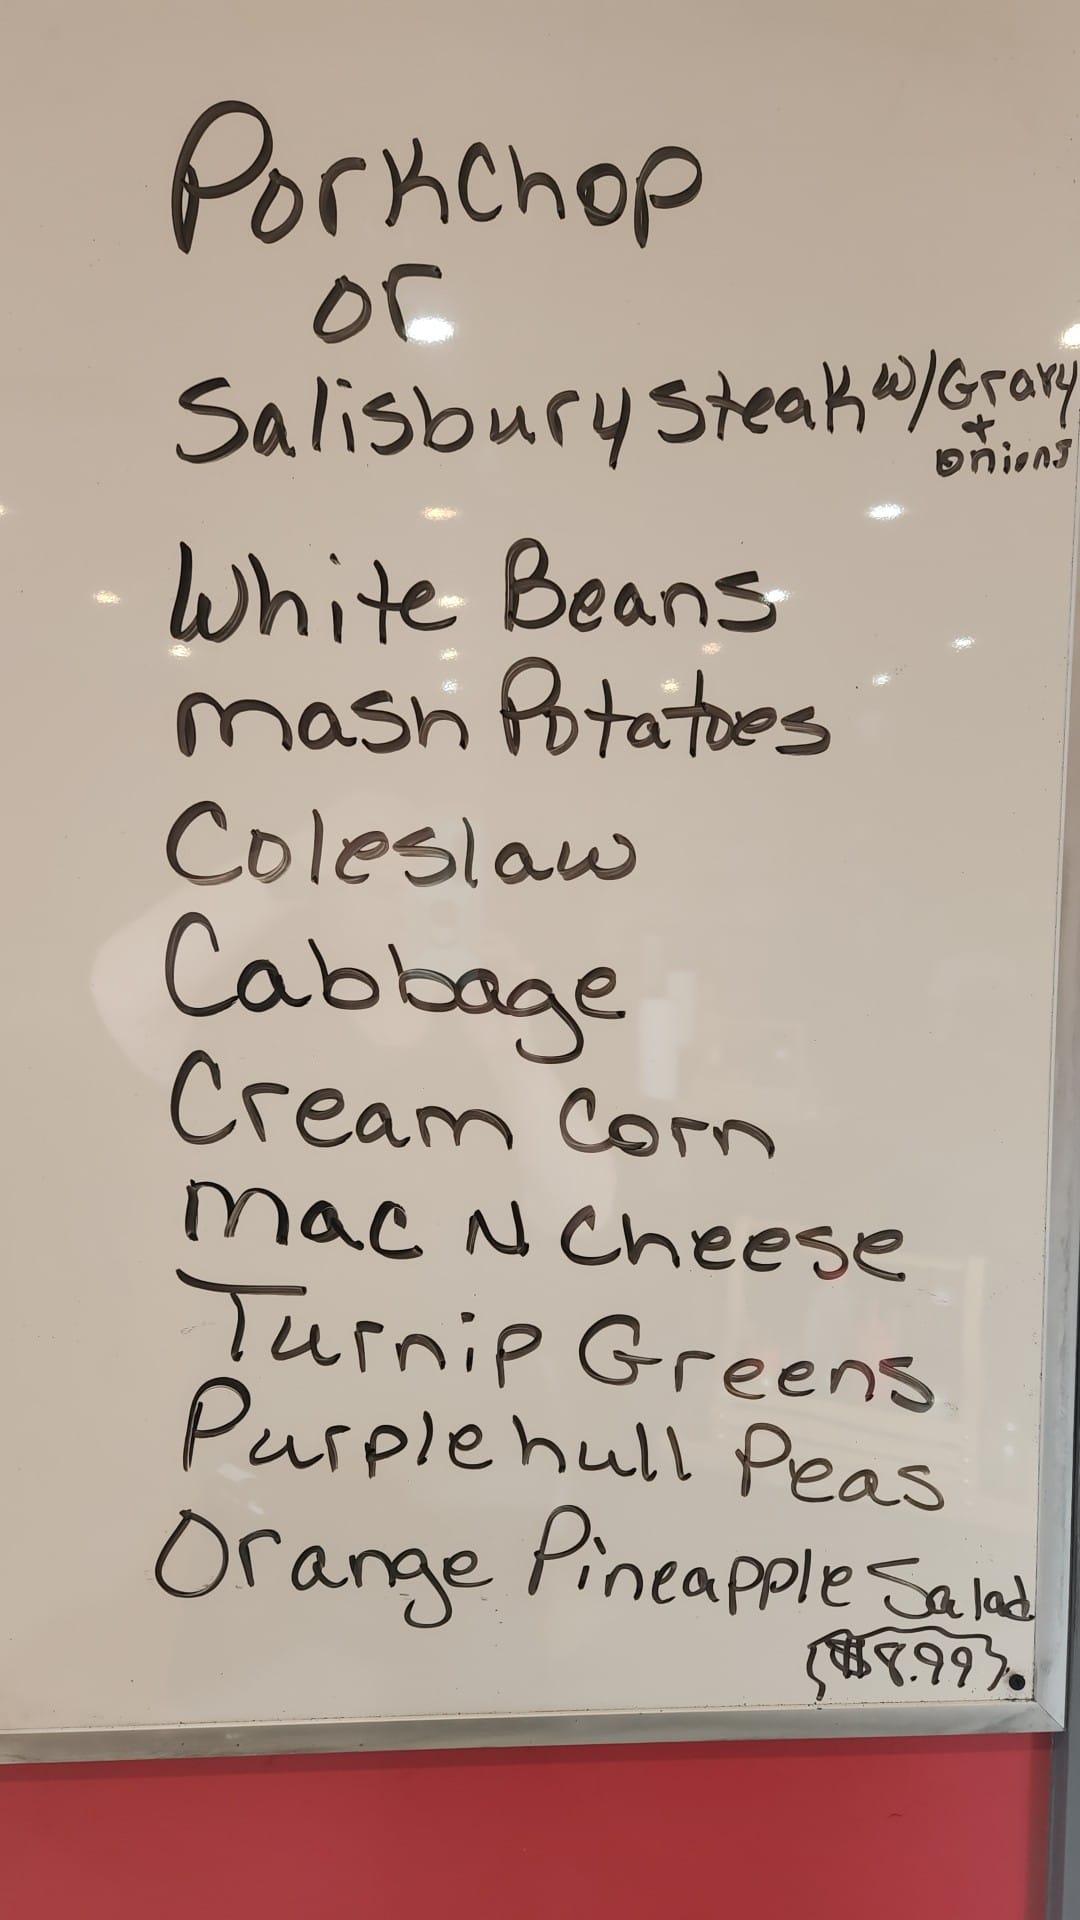 PorkChop
or
Salisbury Steak w/Gravy
+
onions
White Beans
mash Potatoes
Coleslaw
Cabbage
Cream Corn
Mac N Cheese
Turnip Greens
Purplehull Peas
Orange Pineapple Salad
$8.99